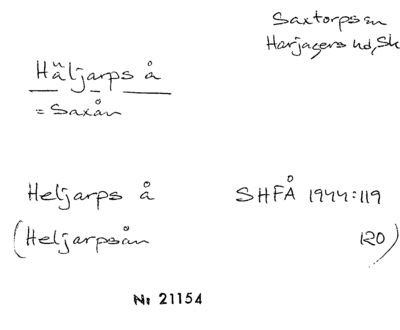 Saxtorps sn
Harjagers hd, Sk
Häljarps å
= Saxån
Heljarps å SHFÅ 1944:119
(Heljarpsån 120)
Nr 21154